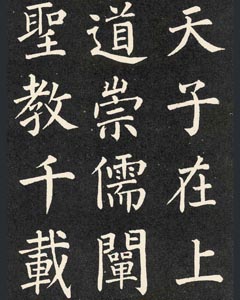 天子在上
道崇儒闡
聖教千載